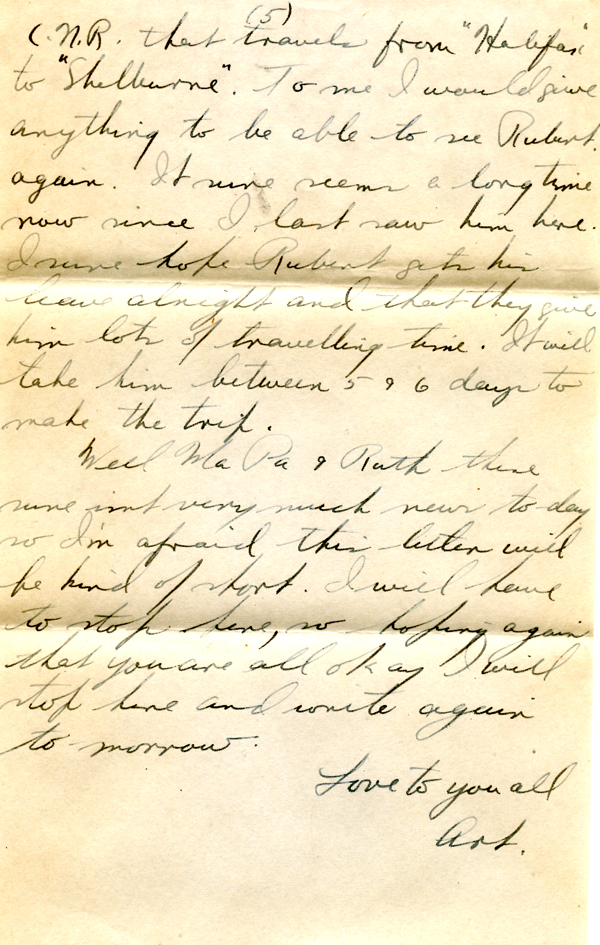 (5)
C.N.R. that travels from "Halifax"
to "Shelburne". To me I would give
anything to be able to see Rubert.
again. It sure seems a long time
now since I last saw him here.
I sure hope Rubert gets his
leave alright and that they give
him lots of travelling time. It will
take him between 5 & 6 days to
make the trip.
Well Ma Pa & Ruth there
sure isnt very much news to-day
so I'm afraid this letter will
be kind of short. I will have
to stop here, so hoping again
that you are all okay I will
stop here and write again
to morrow.
Love to you all
Art.